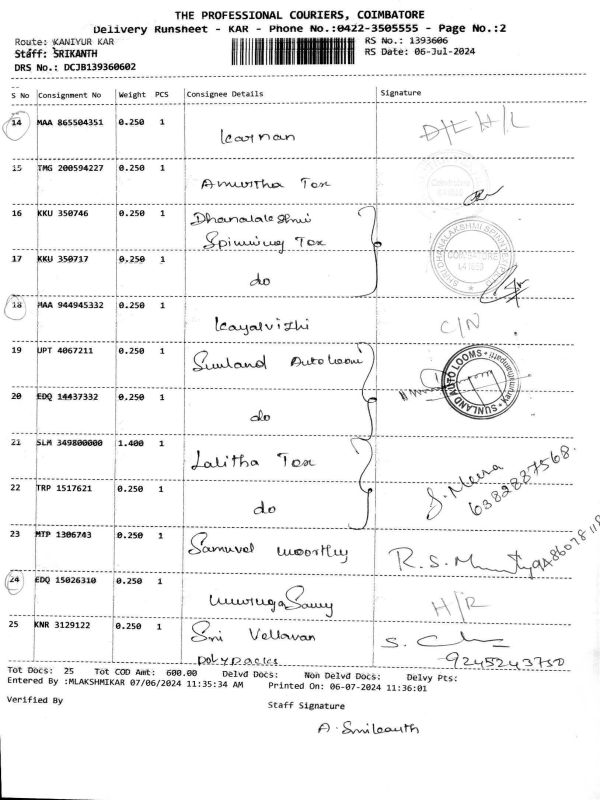 THE PROFESSIONAL COURIERS, COIMBATORE
Delivery Runsheet - KAR - Phone No.:0422-3505555 - Page No.:2
Route: KANIYUR KAR RS No.: 1393606
Staff: SRIKANTH RS Date: 06-Jul-2024
DRS No.: DCJB139360602
S No Consignment No Weight PCS Consignee Details Signature
14 MAA 865504351 0.250 1
Karnan D/L H/L
15 TMG 200594227 0.250 1
Amurtha Tex
16 KKU 350746 0.250 1 Dhanalakshmi
Spinning Tex
17 KKU 350717 0.250 1
do
COIMBATORE
641659
18 MAA 944945332 0.250 1
Kayalvizhi C/N
19 UPT 4067211 0.250 1
Sunland Autoloom
SUNLAND AUTO LOOMS
20 EDQ 14437332 0.250 1
do
21 SLM 349800000 1.400 1
Lalitha Tex
S. Meena
6382887568.
22 TRP 1517621 0.250 1
do
23 MTP 1306743 0.250 1
Samuvel Moorthy R. S.
24 EDQ 15026310 0.250 1
MurugaSamy H/R
25 KNR 3129122 0.250 1
Sri Vellavan S.
Polypacks 9245243750
Tot Docs: 25 Tot COD Amt: 600.00 Delvd Docs: Non Delvd Docs: Delvy Pts:
Entered By :MLAKSHMIKAR 07/06/2024 11:35:34 AM Printed On: 06-07-2024 11:36:01
Verified By Staff Signature
A. Srikanth